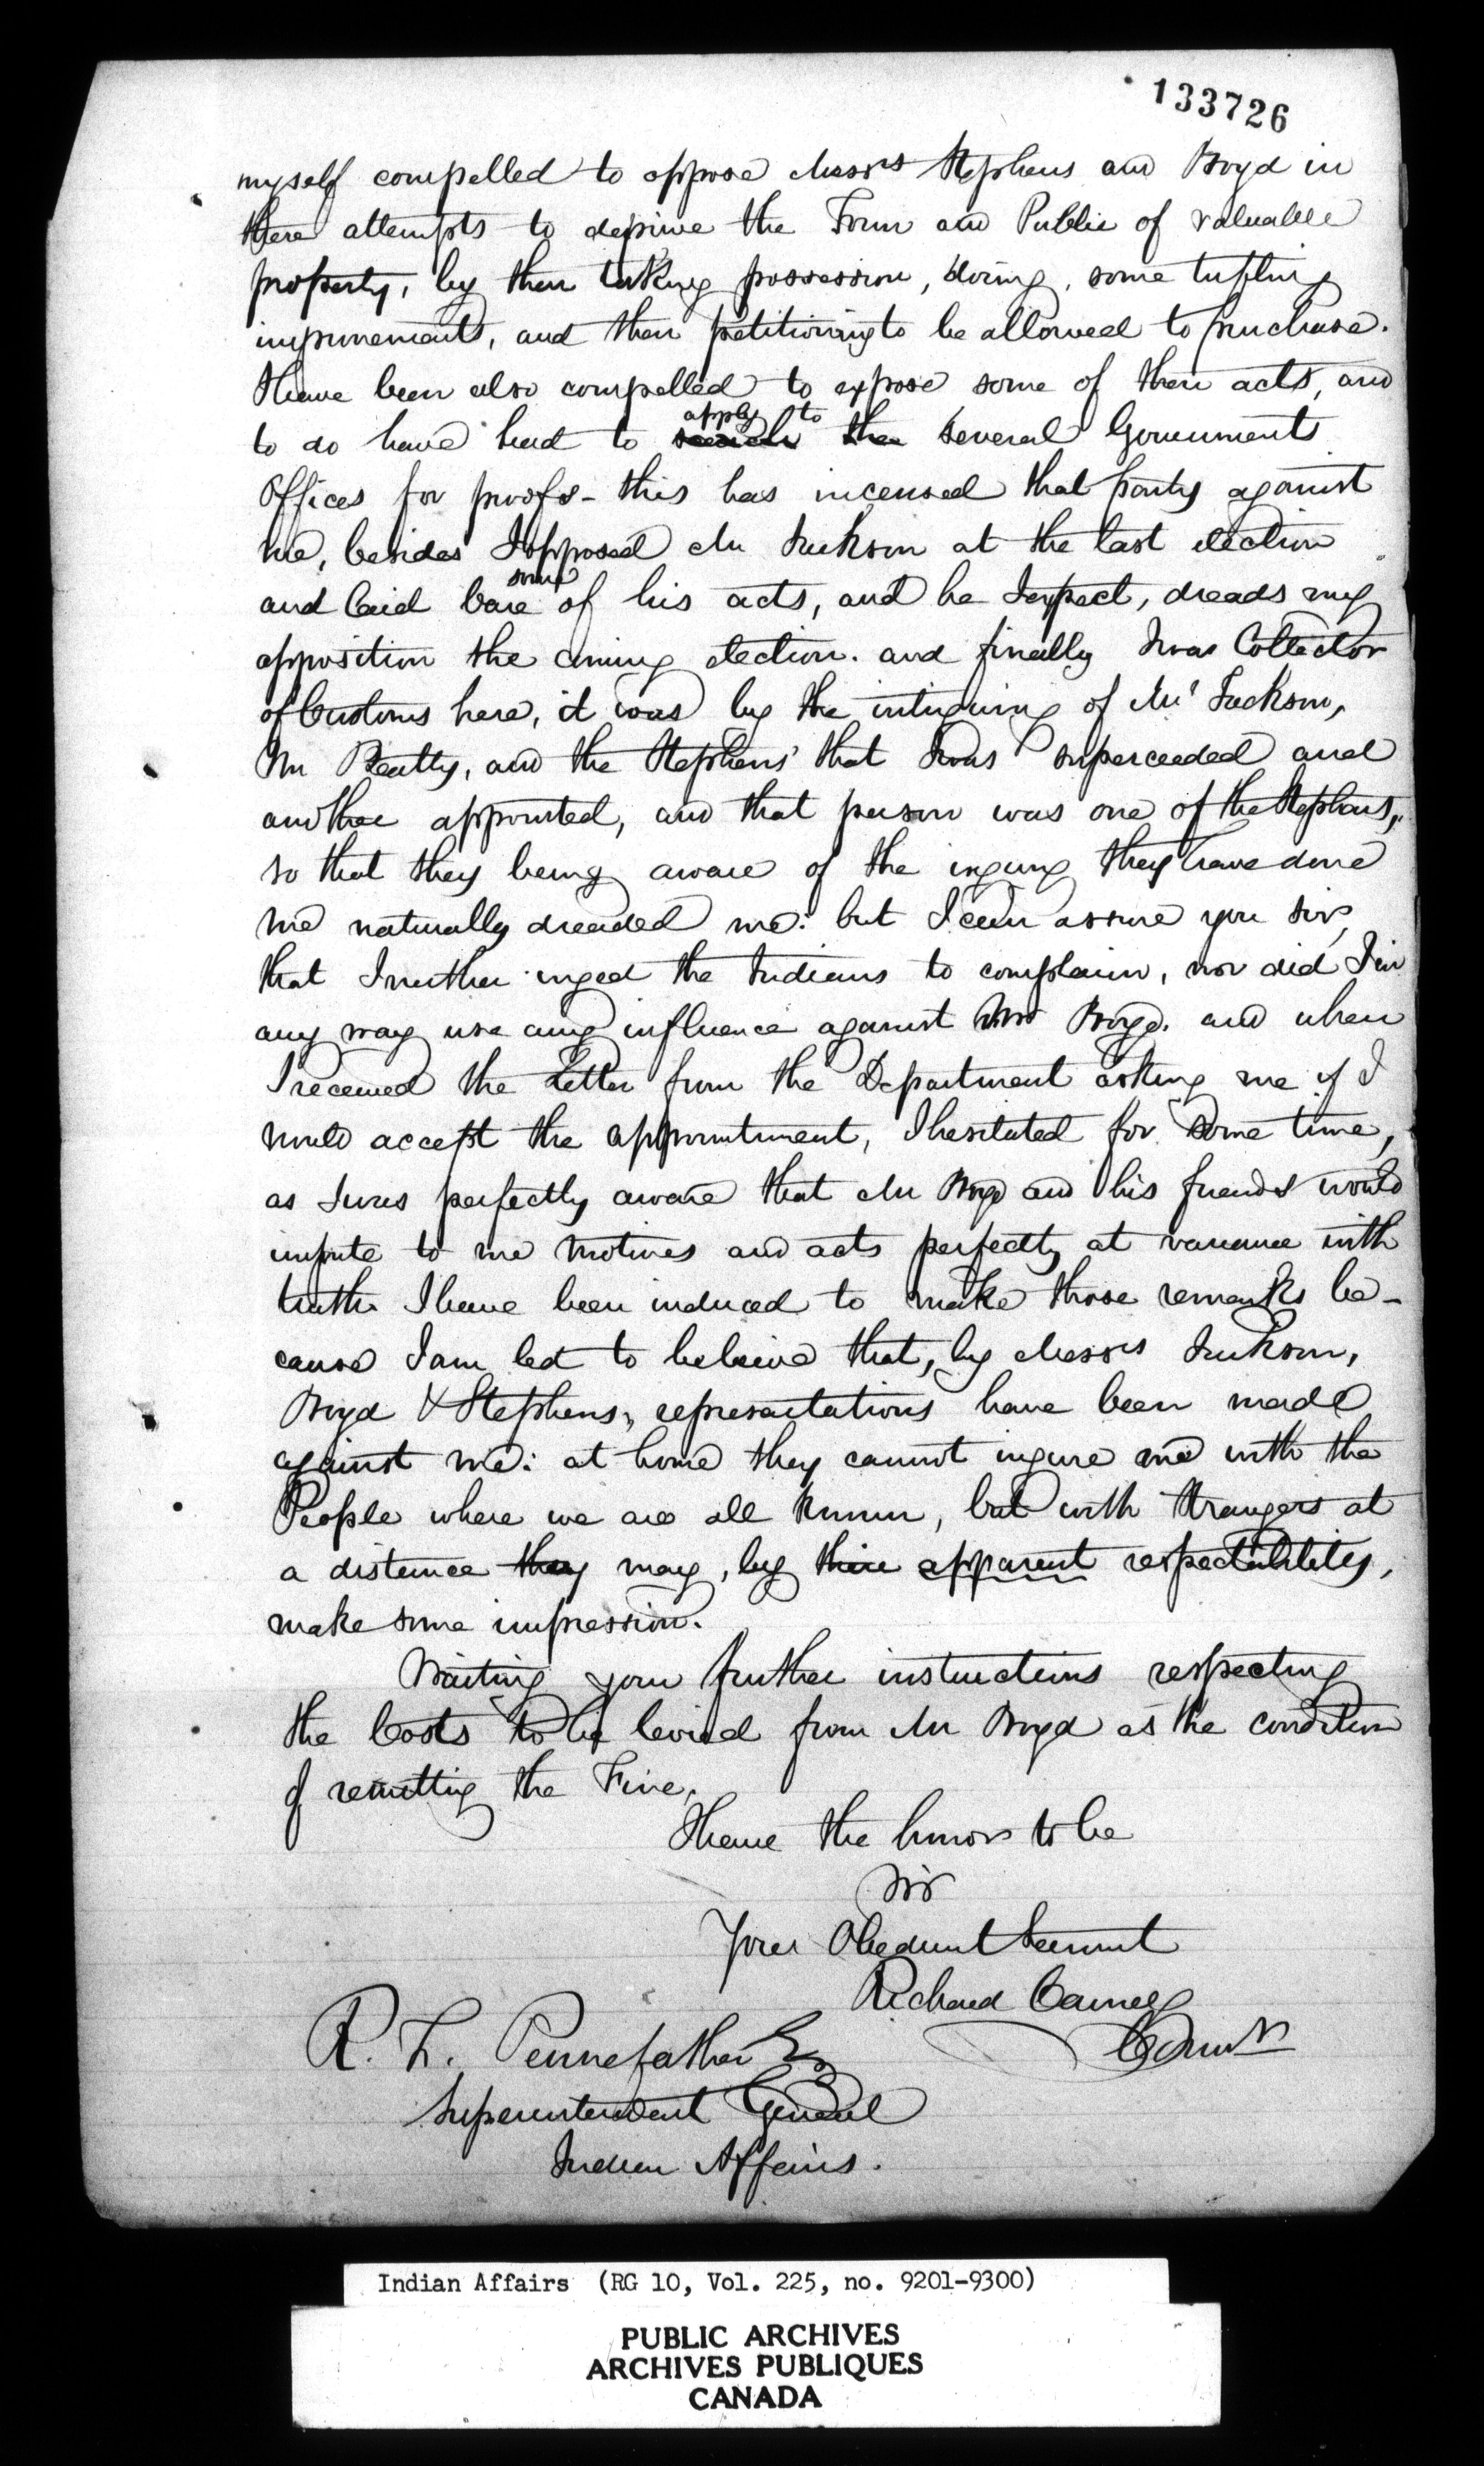 133726
myself compelled to oppose Messrs Stephens and Boyd in
there attempts to deprive the Town and Public of valuable
property, by then taking possession, doing, some trifling
improvements, and then petitioning to be allowed to purchase.
I have been also compelled to expose some of their acts, and
to do have had to search apply to the several Governments
Offices for proofs - this has incensed that party against
me, besides I opposed Mr Jackson at the last election
and laid bare some of his acts, and he I expect, dreads my
opposition the coming election. and finally I was Collector
of Customs here, it was by the intriguing of Mr Jackson,
Mr Beatty, and the Stephens' that I was superceeded and
another appointed, and that person was one of the Stephens,
so that they being aware of the ingury they have done
me naturally dreaded me: but I can assure you sir,
that I neither urged the Indians to complain, nor did I in
any way use any influence against Mr Boyd. and when
I received the Letter from the Department asking me if I
would accept the appointment, I hesitated for some time,
as I was perfectly aware that Mr Boyd and his friends would
impute to me motives and acts perfectly at variance with
truth. I have been induced to make those remarks be-
cause I am led to beleive that, by Messrs Jackson,
Boyd & Stephens, representations have been made
against me: at home they cannot ingure me with the
People where we are all known, but with strangers at
a distance they may, by their apparent respectability,
make some impression.
Waiting your further instructions respecting
the Costs to be levied from Mr Boyd as the condition
of remitting the Fine,
I have the honor to be
Sir
Your Obedient Servant
Richard Carney
R. T. Pennefather Esq
Superintendent General
Indian Affairs.
Indian Affairs (RG 10, Vol. 225, no. 9201-9300)
PUBLIC ARCHIVES
ARCHIVES PUBLIQUES
CANADA